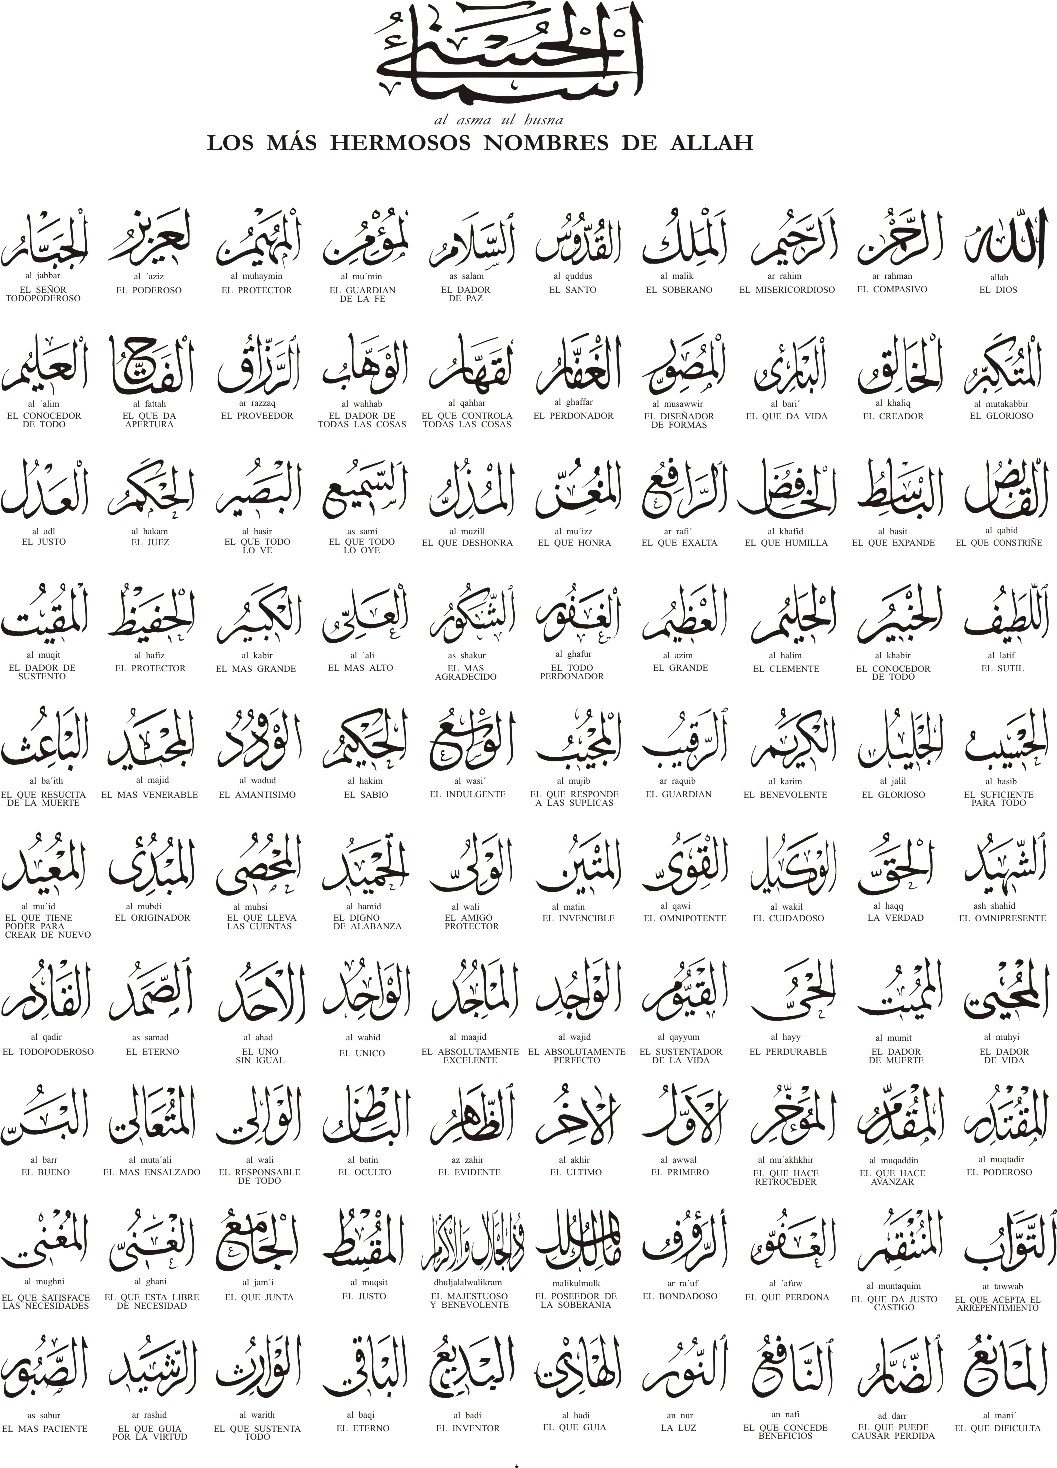 أسماء الحسنى
al asma ul husna
LOS MÁS HERMOSOS NOMBRES DE ALLAH
الله
allah
EL DIOS
الرحمن
ar rahman
EL COMPASIVO
الرحيم
ar rahim
EL MISERICORDIOSO
الملك
al malik
EL SOBERANO
القدوس
al quddus
EL SANTO
السلام
as salam
EL DADOR
DE PAZ
المؤمن
al mu´min
EL GUARDIAN
DE LA FE
المهيمن
al muhaymin
EL PROTECTOR
العزيز
al ´aziz
EL PODEROSO
الجبار
al jabbar
EL SEÑOR
TODOPODEROSO
المتكبر
al mutakabbir
EL GLORIOSO
الخالق
al khaliq
EL CREADOR
البارئ
al bari´
EL QUE DA VIDA
المصور
al musawwir
EL DISEÑADOR
DE FORMAS
الغفار
al ghaffar
EL PERDONADOR
القهار
al qahhar
EL QUE CONTROLA
TODAS LAS COSAS
الوهاب
al wahhab
EL DADOR DE
TODAS LAS COSAS
الرزاق
ar razzaq
EL PROVEEDOR
الفتاح
al fattah
EL QUE DA
APERTURA
العليم
al ´alim
EL CONOCEDOR
DE TODO
القابض
al qabid
EL QUE CONSTRIÑE
الباسط
al basit
EL QUE EXPANDE
الخافض
al khafid
EL QUE HUMILLA
الرافع
ar rafi´
EL QUE EXALTA
المعز
al mu´izz
EL QUE HONRA
المذل
al muzill
EL QUE DESHONRA
السميع
as sami´
EL QUE TODO
LO OYE
البصير
al basir
EL QUE TODO
LO VE
الحكم
al hakam
EL JUEZ
العدل
al adl
EL JUSTO
اللطيف
al latif
EL SUTIL
الخبير
al khabir
EL CONOCEDOR
DE TODO
الحليم
al halim
EL CLEMENTE
العظيم
al azim
EL GRANDE
الغفور
al ghafur
EL TODO
PERDONADOR
الشكور
as shakur
EL MAS
AGRADECIDO
العلي
al ´ali
EL MAS ALTO
الكبير
al kabir
EL MAS GRANDE
الحفيظ
al hafiz
EL PROTECTOR
المقيت
al muqit
EL DADOR DE
SUSTENTO
الحسيب
al hasib
EL SUFICIENTE
PARA TODO
الجليل
al jalil
EL GLORIOSO
الكريم
al karim
EL BENEVOLENTE
الرقيب
ar raquib
EL GUARDIAN
المجيب
al mujib
EL QUE RESPONDE
A LAS SUPLICAS
الواسع
al wasi´
EL INDULGENTE
الحكيم
al hakim
EL SABIO
الودود
al wadud
EL AMANTISIMO
المجيد
al majid
EL MAS VENERABLE
الباعث
al ba´ith
EL QUE RESUCITA
DE LA MUERTE
الشهيد
ash shahid
EL OMNIPRESENTE
الحق
al haqq
LA VERDAD
الوكيل
al wakil
EL CUIDADOSO
القوي
al qawi
EL OMNIPOTENTE
المتين
al matin
EL INVENCIBLE
الولي
al wali
EL AMIGO
PROTECTOR
الحميد
al hamid
EL DIGNO
DE ALABANZA
المحصي
al muhsi
EL QUE LLEVA
LAS CUENTAS
المبدئ
al mubdi
EL ORIGINADOR
المعيد
al mu´id
EL QUE TIENE
PODER PARA
CREAR DE NUEVO
المحيي
al muhyi
EL DADOR
DE VIDA
المميت
al mumit
EL DADOR
DE MUERTE
الحي
al hayy
EL PERDURABLE
القيوم
al qayyum
EL SUSTENTADOR
DE LA VIDA
الواجد
al wajid
EL ABSOLUTAMENTE
PERFECTO
الماجد
al maajid
EL ABSOLUTAMENTE
EXCELENTE
الواحد
al wahid
EL UNICO
الاحد
al ahad
EL UNO
SIN IGUAL
الصمد
as samad
EL ETERNO
القادر
al qadir
EL TODOPODEROSO
المقتدر
al muqtadir
EL PODEROSO
المقدم
al muqaddin
EL QUE HACE
AVANZAR
المؤخر
al mu´akhkhir
EL QUE HACE
RETROCEDER
الاول
al awwal
EL PRIMERO
الاخر
al akhir
EL ULTIMO
الظاهر
az zahir
EL EVIDENTE
الباطن
al batin
EL OCULTO
الوالي
al wali
EL RESPONSABLE
DE TODO
المتعالي
al muta´ali
EL MAS ENSALZADO
البر
al barr
EL BUENO
التواب
at tawwab
EL QUE ACEPTA EL
ARREPENTIMIENTO
المنتقم
al muntaquim
EL QUE DA JUSTO
CASTIGO
العفو
al ´afuw
EL QUE PERDONA
الرؤوف
ar ra´uf
EL BONDADOSO
مالك الملك
malikulmulk
EL POSEEDOR DE
LA SOBERANIA
ذو الجلال والاكرام
dhuljalalwalikram
EL MAJESTUOSO
Y BENEVOLENTE
المقسط
al muqsit
EL JUSTO
الجامع
al jam´i
EL QUE JUNTA
الغني
al ghani
EL QUE ESTA LIBRE
DE NECESIDAD
المغني
al mughni
EL QUE SATISFACE
LAS NECESIDADES
المانع
al mani´
EL QUE DIFICULTA
الضار
ad darr
EL QUE PUEDE
CAUSAR PERDIDA
النافع
an nafi
EL QUE CONCEDE
BENEFICIOS
النور
an nur
LA LUZ
الهادي
al hadi
EL QUE GUIA
البديع
al badi
EL INVENTOR
الباقي
al baqi
EL ETERNO
الوارث
al warith
EL QUE SUSTENTA
TODO
الرشيد
ar rashid
EL QUE GUIA
POR LA VIRTUD
الصبور
as sabur
EL MAS PACIENTE